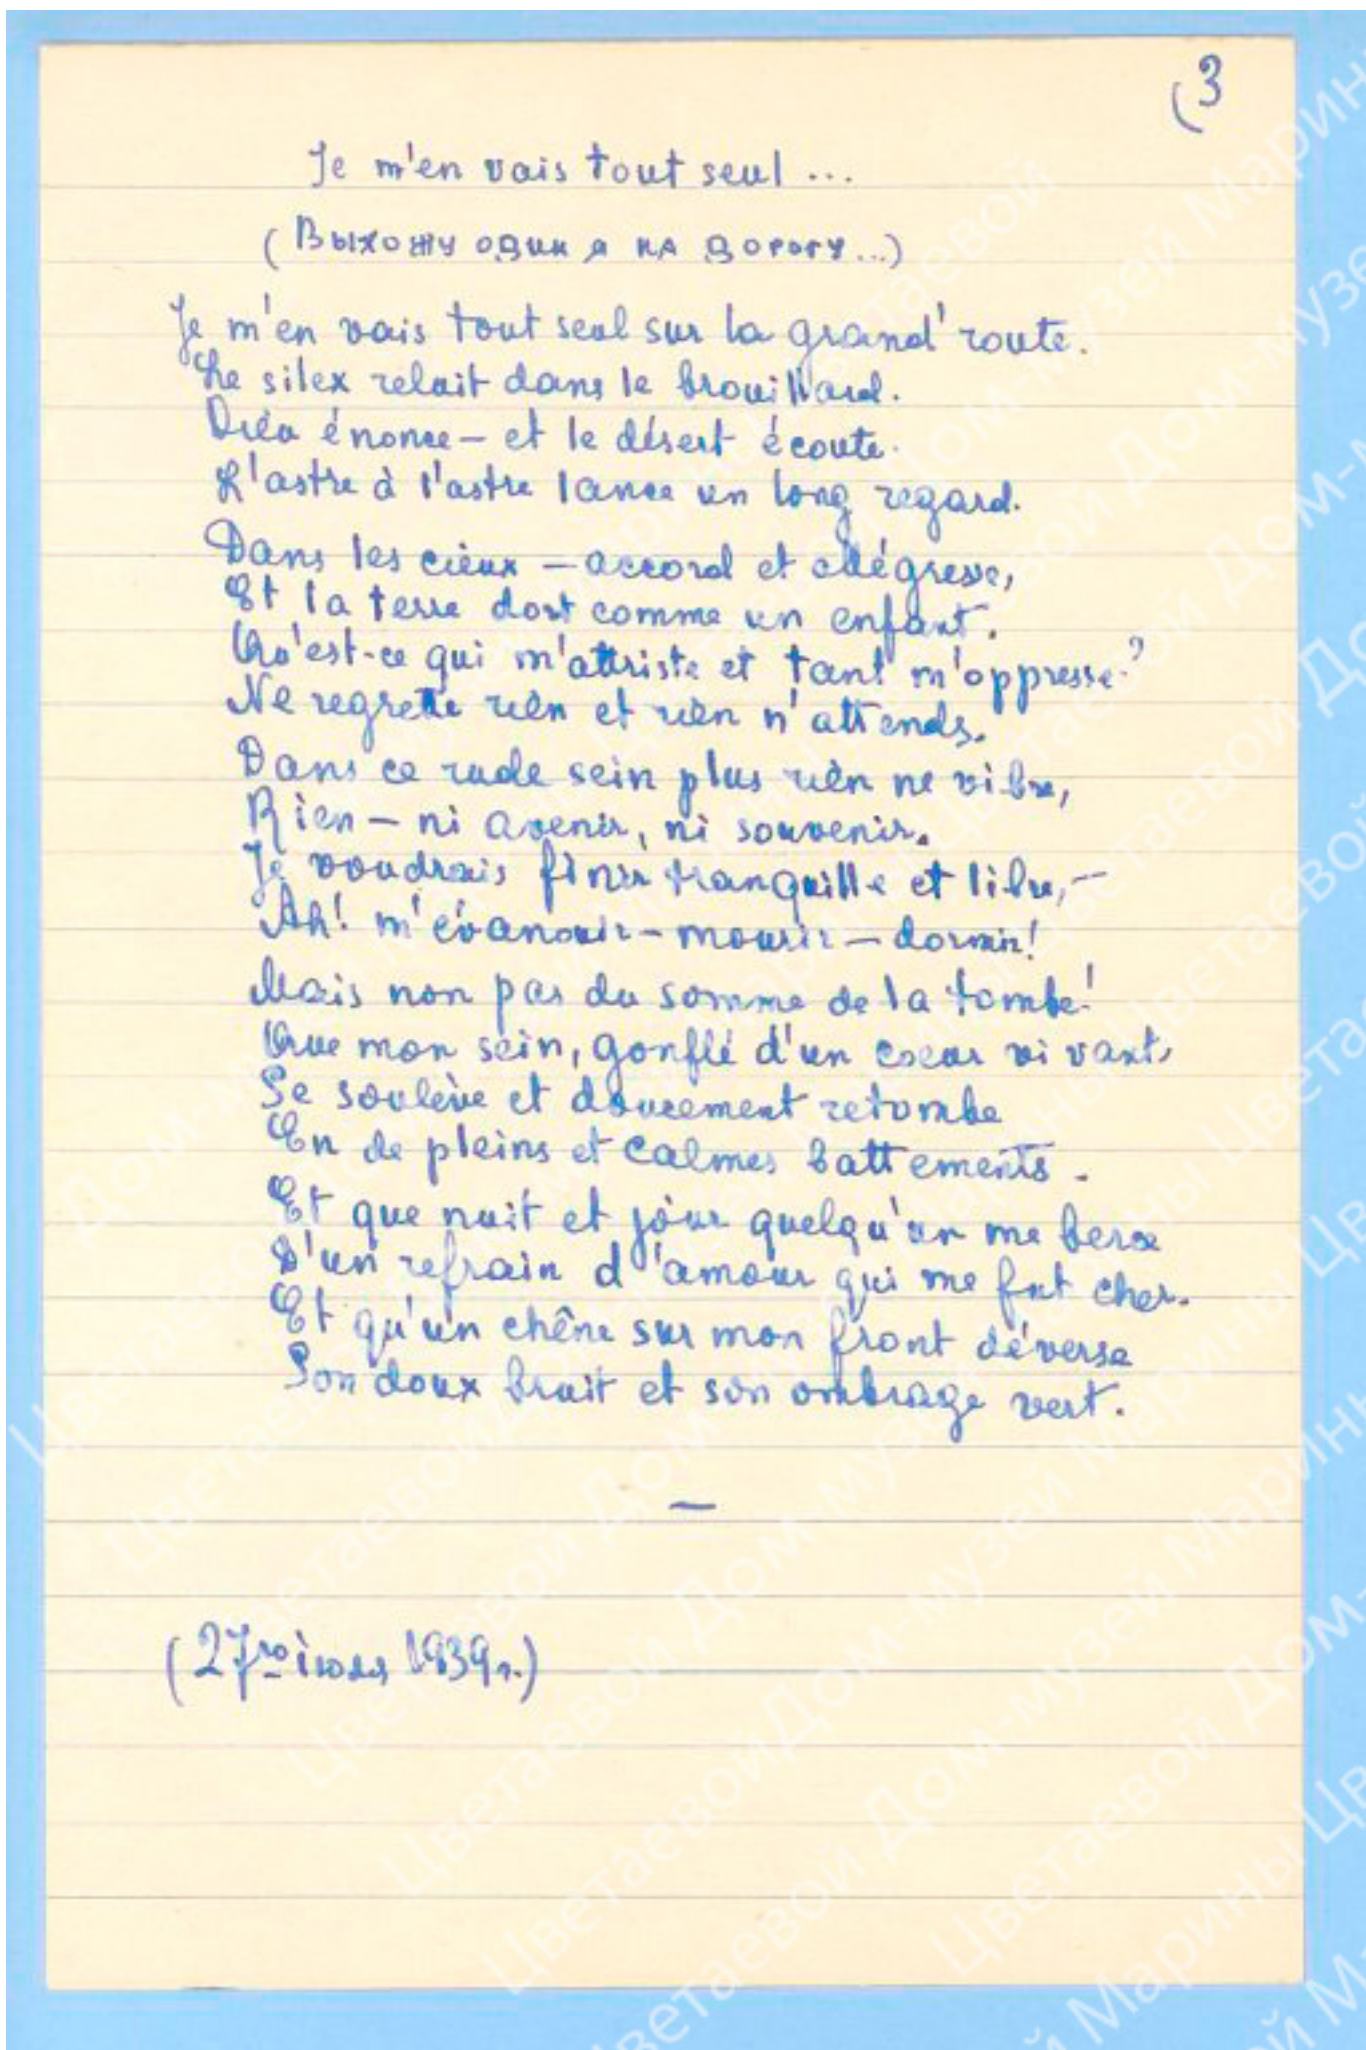 (3
Je m'en vais tout seul ...
(Выхожу один я на дорогу...)
Je m'en vais tout seul sur la grand' route.
Le silex reluit dans le brouillard.
Dieu énonce — et le désert écoute.
L'astre à l'astre lance un long regard.
Dans les cieux — accord et allégresse,
Et la terre dort comme un enfant.
Qu'est-ce qui m'attriste et tant m'oppresse?
Ne regrette rien et rien n'attends.
Dans ce rude sein plus rien ne vibre,
Rien — ni avenir, ni souvenir.
Je voudrais finir tranquille et libre, —
Ah! m'évanouir — mourir — dormir!
Mais non pas du somme de la tombe!
Que mon sein, gonflé d'un coeur vivant,
Se soulève et doucement retombe
En de pleins et calmes battements.
Et que nuit et jour quelqu'un me berce
D'un refrain d'amour qui me fut cher.
Et qu'un chêne sur mon front déverse
Son doux bruit et son ombrage vert.
—
(27го июля 1939г.)
Дом-музей Марины Цветаевой